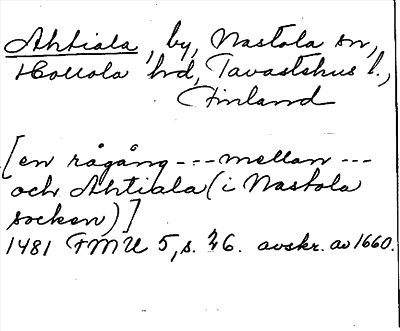 Ahtiala, by, Nastola sn,
Hollola hd, Tavastehus l.,
Finland
[en rågång --- mellan ---
och Ahtiala (i Nastola
socken)]
1481 FMU 5, s. 6. avskr. av 1660.